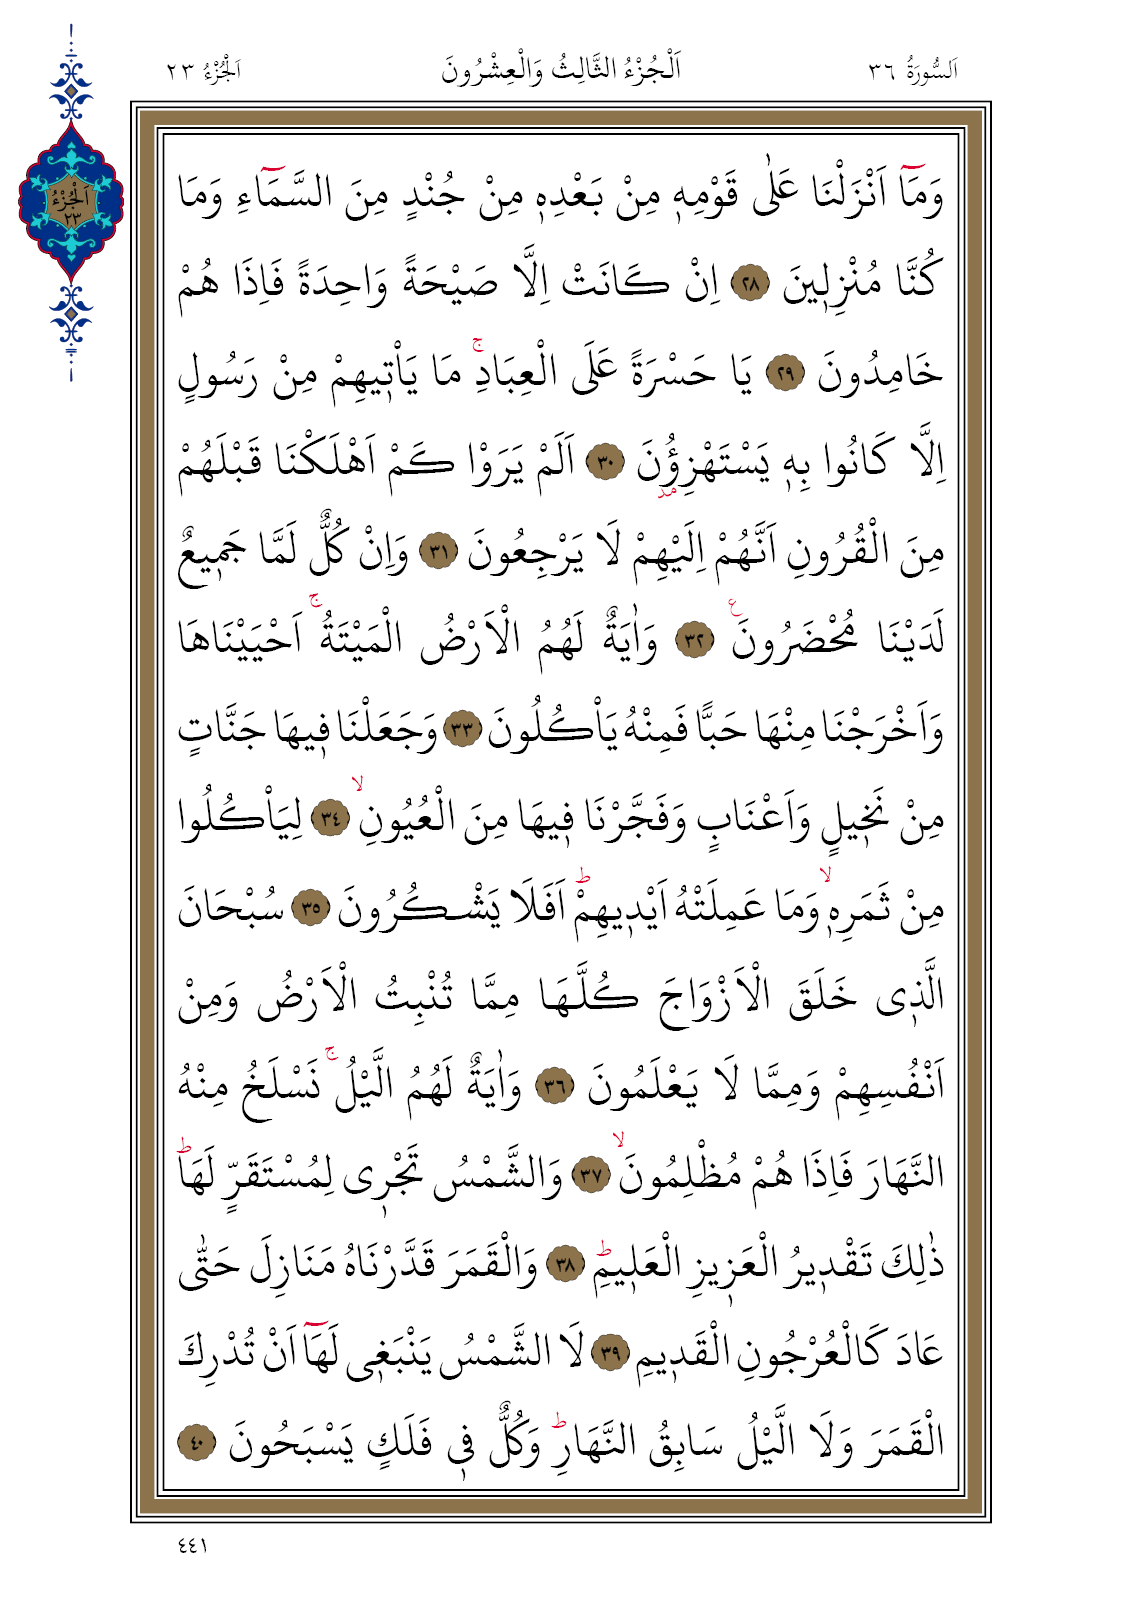 اَلسُّورَةُ ٣٦ اَلْجُزْءُ الثَّالِثُ وَالْعِشْرُونَ اَلْجُزْءُ ٢٣
اَلْجُزْءُ
٢٣
وَمَٓا اَنْزَلْنَا عَلٰى قَوْمِهٖ مِنْ بَعْدِهٖ مِنْ جُنْدٍ مِنَ السَّمَٓاءِ وَمَا
كُنَّا مُنْزِلٖينَ ٢٨ اِنْ كَانَتْ اِلَّا صَيْحَةً وَاحِدَةً فَاِذَا هُمْ
خَامِدُونَ ٢٩ يَا حَسْرَةً عَلَى الْعِبَادِۚ مَا يَاْتٖيهِمْ مِنْ رَسُولٍ
اِلَّا كَانُوا بِهٖ يَسْتَهْزِؤُ۫نَ ٣٠ اَلَمْ يَرَوْا كَمْ اَهْلَكْنَا قَبْلَهُمْ
مِنَ الْقُرُونِ اَنَّهُمْ اِلَيْهِمْ لَا يَرْجِعُونَ ٣١ وَاِنْ كُلٌّ لَمَّا جَمٖيعٌ
لَدَيْنَا مُحْضَرُونَ ع ٣٢ وَاٰيَةٌ لَهُمُ الْاَرْضُ الْمَيْتَةُۚ اَحْيَيْنَاهَا
وَاَخْرَجْنَا مِنْهَا حَبًّا فَمِنْهُ يَاْكُلُونَ ٣٣ وَجَعَلْنَا فٖيهَا جَنَّاتٍ
مِنْ نَخٖيلٍ وَاَعْنَابٍ وَفَجَّرْنَا فٖيهَا مِنَ الْعُيُونِۙ ٣٤ لِيَاْكُلُوا
مِنْ ثَمَرِهٖۙ وَمَا عَمِلَتْهُ اَيْدٖيهِمْؕ اَفَلَا يَشْكُرُونَ ٣٥ سُبْحَانَ
الَّذٖى خَلَقَ الْاَزْوَاجَ كُلَّهَا مِمَّا تُنْبِتُ الْاَرْضُ وَمِنْ
اَنْفُسِهِمْ وَمِمَّا لَا يَعْلَمُونَ ٣٦ وَاٰيَةٌ لَهُمُ الَّيْلُۚ نَسْلَخُ مِنْهُ
النَّهَارَ فَاِذَا هُمْ مُظْلِمُونَۙ ٣٧ وَالشَّمْسُ تَجْرٖى لِمُسْتَقَرٍّ لَهَاؕ
ذٰلِكَ تَقْدٖيرُ الْعَزٖيزِ الْعَلٖيمِؕ ٣٨ وَالْقَمَرَ قَدَّرْنَاهُ مَنَازِلَ حَتّٰى
عَادَ كَالْعُرْجُونِ الْقَدٖيمِ ٣٩ لَا الشَّمْسُ يَنْبَغٖى لَهَٓا اَنْ تُدْرِكَ
الْقَمَرَ وَلَا الَّيْلُ سَابِقُ النَّهَارِؕ وَكُلٌّ فٖى فَلَكٍ يَسْبَحُونَ ٤٠
٤٤١